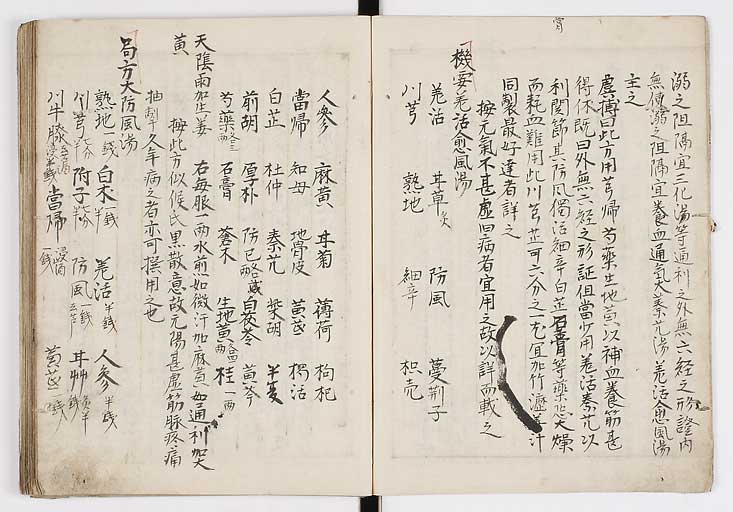 溺之阻隔宜三化湯等通利之外無六經之形證内
無便溺之阻隔宜養血通氣大秦艽湯羌活愈風湯
主之
虞摶曰此方用芎歸芍藥生地黄以補血養筋甚
得体既曰外無六経之形証但當少用羌活秦艽以
利関節其防風獨活細辛白芷石膏等藥恐大燥
而耗血難用此川芎芷可六分之一尤宜加竹瀝姜汁
同製最好達者詳之
按元氣不甚虚旧病者宜用之故以詳而載之
機要羌活愈風湯
羌活 甘草炙 防風 蔓荆子
川芎 熟地 細辛 枳売
人參 麻黄 甘菊 薄荷 枸杞
當歸 知母 地骨皮 黄芪 獨活
白芷 杜仲 秦艽 柴胡 半夏
前胡 厚朴 防已 白茯苓 黄芩
芍藥 石膏 蒼木 生地黄 桂一両
天陰雨加生姜 右毎服一両水煎如微汗加麻黄如通利加大
黄 按此方似候氏黒散意故元陽甚虚筋脉疼痛
抽掣久年病之者亦可撰用之也
局方大防風湯
熟地一錢 白木 羌活半錢 人參半錢
川芎 附子 防風一錢 甘艸
川牛膝 當歸浸酒一錢 黄芪一錢